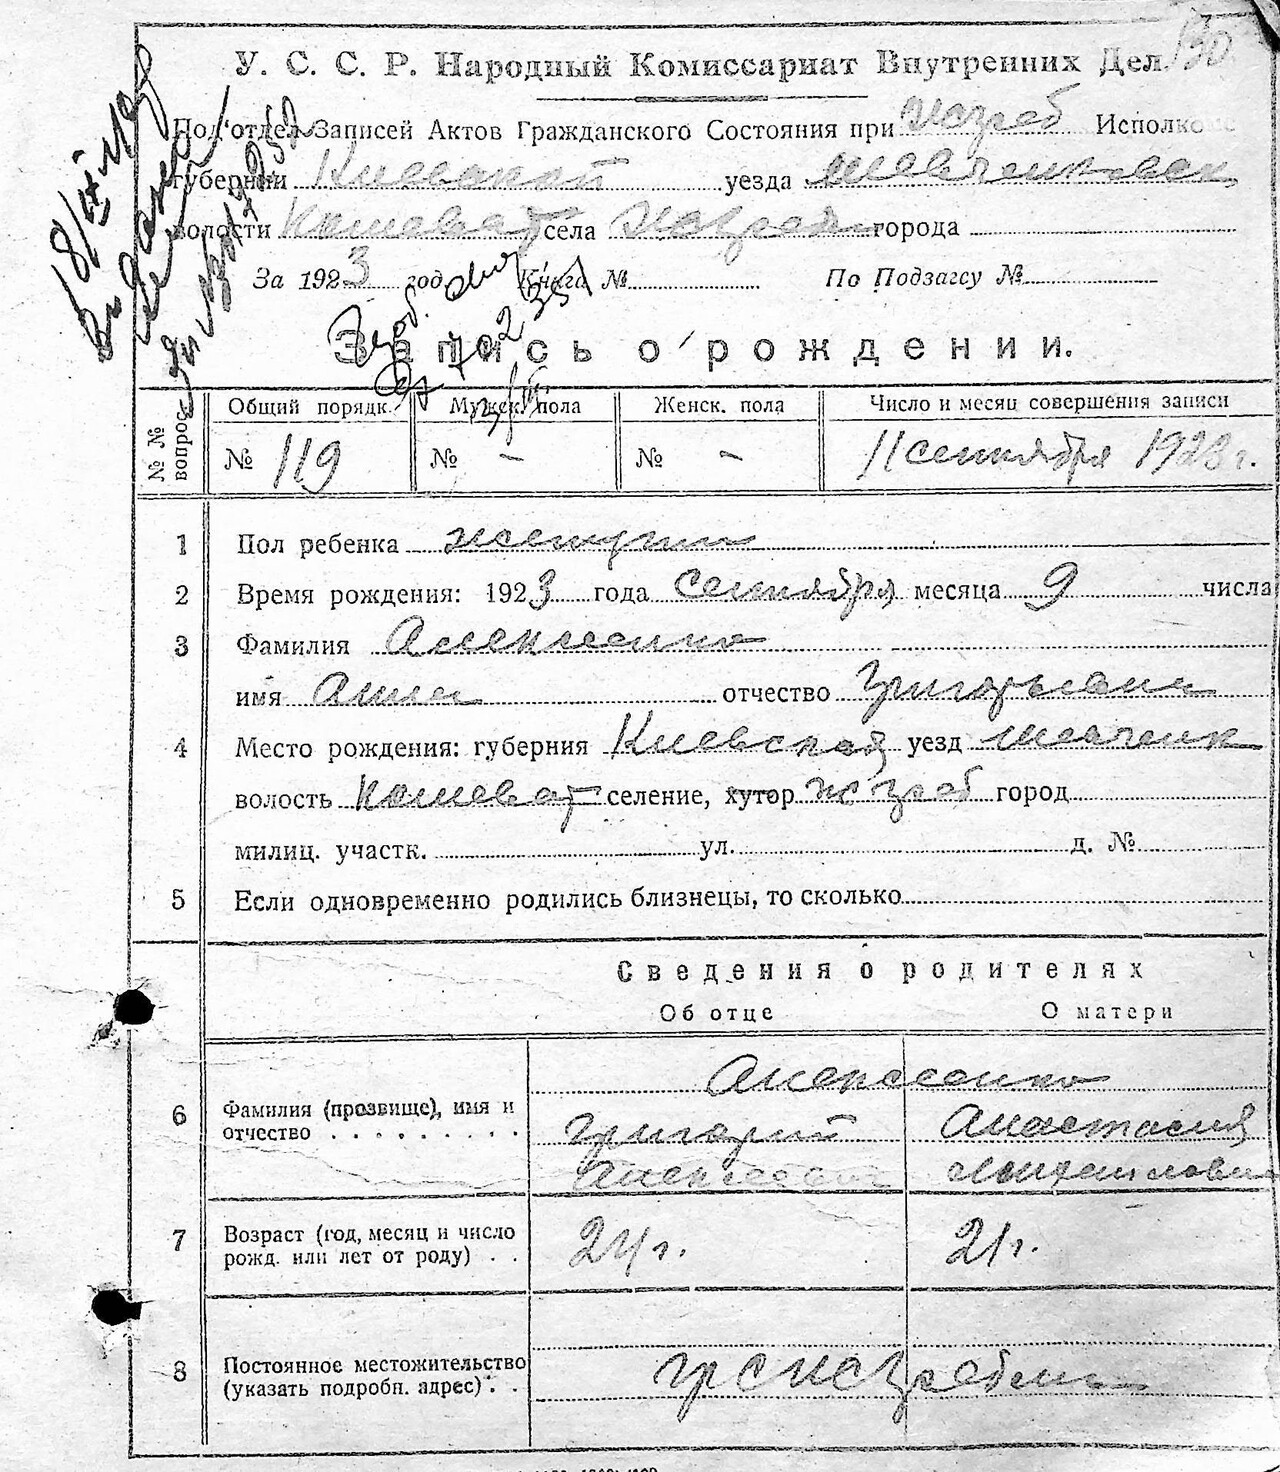 130
У. С. С. Р. Народный Комиссариат Внутренних Дел.
Под'отдел Записей Актов Гражданского Состояния при Исполкоме
губернии Киевской уезда Шевченковск
волости Кошеват села города
За 1923 год. Книга № По Подзагсу №
Запись о рождении.
№№ вопрос. Общий порядк. Мужск. пола Женск. пола Число и месяц совершения записи
№ 119 № – № – 11 сентября 1923 г.
1 Пол ребенка женский
2 Время рождения: 1923 года Сентября месяца 9 числа
3 Фамилия Алексеенко
имя Анна отчество Григорьевна
4 Место рождения: губерния Киевской уезд Шевченк
волость Кошеват селение, хутор город
милиц. участк. ул. д. №
5 Если одновременно родились близнецы, то сколько
Сведения о родителях
Об отце О матери
Алексеенко
6 Фамилия (прозвище), имя и Григорий Анастасия
отчество . . . . . . . . . Алексеевич Михайловна
7 Возраст (год, месяц и число 24 г. 21 г.
рожд. или лет от роду) . .
8 Постоянное местожительство
(указать подробн. адрес) . .